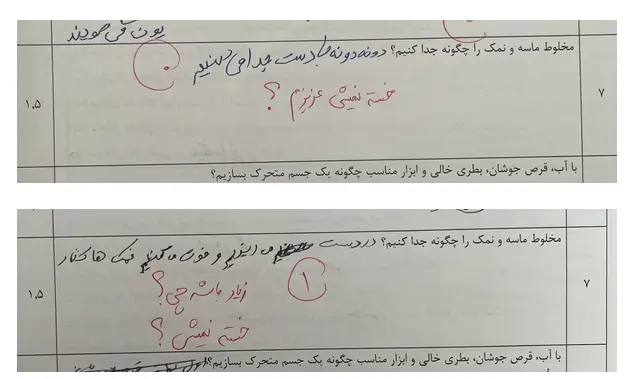 یون می گویند
مخلوط ماسه و نمک را چگونه جدا کنیم؟ دونه دونه با دست جدا می کنیم
خسته نمیشی عزیزم ؟
۷
۱.۵
با آب، قرص جوشان، بطری خالی و ابزار مناسب چگونه یک جسم متحرک بسازیم؟
مخلوط ماسه و نمک را چگونه جدا کنیم؟ در دست می ریزیم و فوت می کنیم نمک ها کنار
۱
زیاد باشه چی ؟
خسته نمیشی ؟
۷
۱.۵
با آب، قرص جوشان، بطری خالی و ابزار مناسب چگونه یک جسم متحرک بسازیم؟